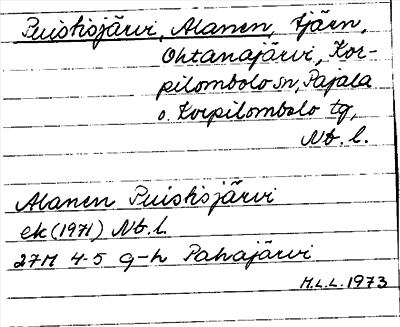 Puiskisjärvi, Alanen, tjärn,
Ohtanajärvi, Kor-
pilombolo sn, Pajala
o. Korpilombolo tg,
Nb. l.
Alanen Puiskisjärvi
ek (1971) Nb. l.
27M 4-5 g-h Pahajärvi
M.L.L. 1973